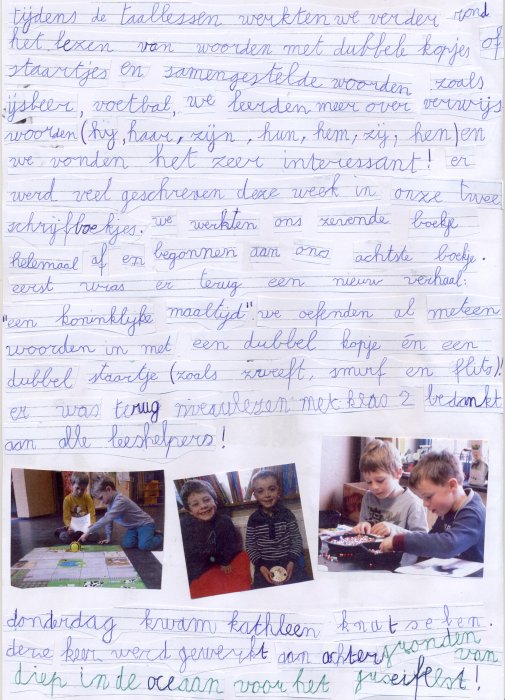 tijdens de taallessen werkten we verder rond
het lezen van woorden met dubbele kopjes of
staartjes en samengestelde woorden zoals
ijsbeer, voetbal, we leerden meer over verwijs
woorden (hij, haar, zijn, hun, hem, zij, hen) en
we vonden het zeer interessant! er
werd veel geschreven deze week in onze twee
schrijfboekjes. we werkten ons zevende boekje
helemaal af en begonnen aan ons achtste boekje.
eerst was er terug een nieuw verhaal:
"een koninklijke maaltijd". we oefenden al meteen
woorden in met een dubbel kopje én een
dubbel staartje (zoals zweeft, smurf en flits)!
er was terug niveaulezen met klas 2 bedankt
aan alle leeshelpers!
donderdag kwam kathleen knutselen.
deze keer werd gewerkt aan achtergronden van
diep in de oceaan voor het juweifeest!